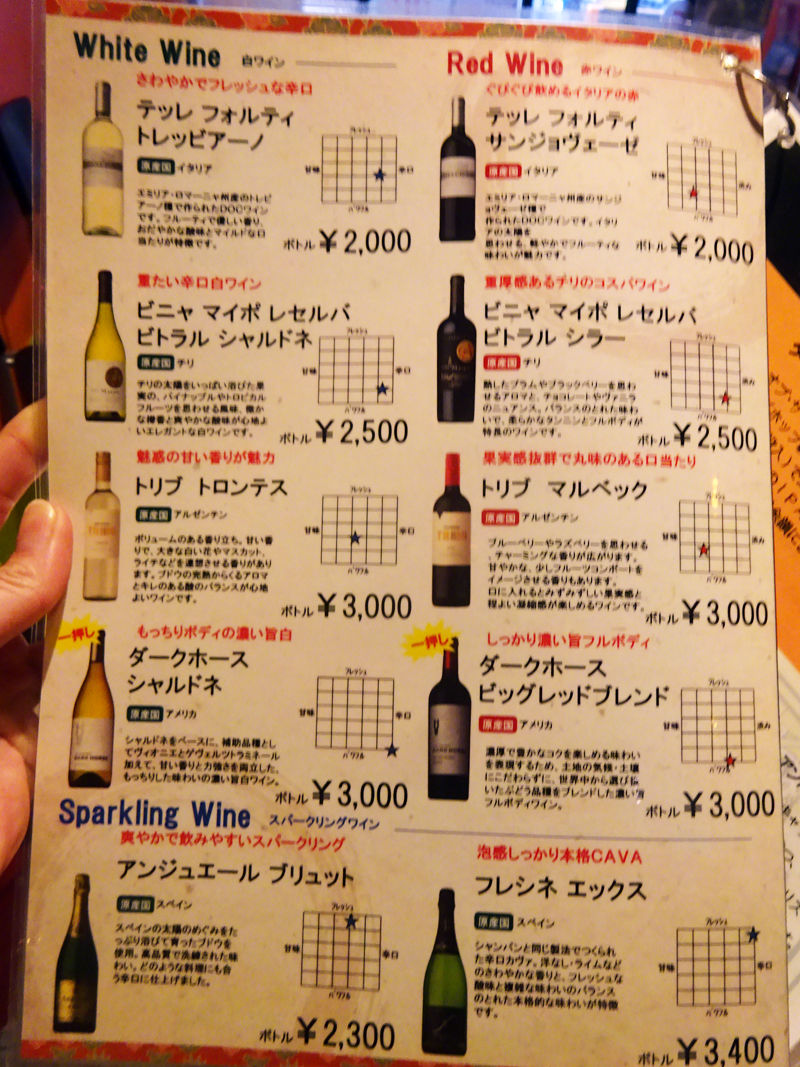 White Wine 白ワイン
さわやかでフレッシュな辛口
テッレ フォルティ
トレッビアーノ
原産国 イタリア
エミリア・ロマーニャ州産のトレビ
アーノ種で作られたDOCワイン
です。フルーティで優しい香り、
おだやかな酸味とマイルドな口
当たりが特徴です。
フレッシュ
甘味 辛口
パワフル
ボトル ¥2,000
重たい辛口白ワイン
ビニャ マイポ レセルバ
ビトラル シャルドネ
原産国 チリ
チリの太陽をいっぱい浴びた果
実の、パイナップルやトロピカル
フルーツを思わせる風味、微か
な樽香と爽やかな酸味が心地よ
いエレガントな白ワインです。
フレッシュ
甘味 辛口
パワフル
ボトル ¥2,500
魅惑の甘い香りが魅力
トリブ トロンテス
原産国 アルゼンチン
ボリュームのある香り立ち。甘い香
りで、大きな白い花やマスカット、
ライチなどを連想させる香りがあり
ます。ブドウの完熟からくるアロマ
とキレのある酸のバランスが心地
よいワインです。
フレッシュ
甘味 辛口
パワフル
ボトル ¥3,000
一押し
もっちりボディの濃い旨白
ダークホース
シャルドネ
原産国 アメリカ
シャルドネをベースに、補助品種とし
てヴィオニエとゲヴェルツトラミネール
加えて、甘い香りと力強さを両立した、
もっちりした味わいの濃い旨白ワイン。
フレッシュ
甘味 辛口
パワフル
ボトル ¥3,000
Red Wine 赤ワイン
ぐびぐび飲めるイタリアの赤
テッレ フォルティ
サンジョヴェーゼ
原産国 イタリア
エミリア・ロマーニャ州産のサンジ
ョヴェーゼ種で
作られたDOCワインです。イタリ
アの太陽を
思わせる、軽やかでフルーティな
味わいが魅力です。
フレッシュ
甘味 渋み
パワフル
ボトル ¥2,000
重厚感あるチリのコスパワイン
ビニャ マイポ レセルバ
ビトラル シラー
原産国 チリ
熟したプラムやブラックベリーを思わ
せるアロマと、チョコレートやヴァニラ
のニュアンス。バランスのとれた味わ
いで、柔らかなタンニンとフルボディが
特長のワインです。
フレッシュ
甘味 渋み
パワフル
ボトル ¥2,500
果実感抜群で丸味のある口当たり
トリブ マルベック
原産国 アルゼンチン
ブルーベリーやラズベリーを思わせる
、チャーミングな香りが広がります。
甘やかな、少しフルーツコンポートを
イメージさせる香りもあります。
口に入れるとみずみずしい果実感と
程よい凝縮感が楽しめるワインです。
フレッシュ
甘味 渋み
パワフル
ボトル ¥3,000
一押し
しっかり濃い旨フルボディ
ダークホース
ビッグレッドブレンド
原産国 アメリカ
濃厚で豊かなコクを楽しめる味わい
を表現するため、土地の気候・土壌
にこだわらずに、世界中から選び抜
いたぶどう品種をブレンドした濃い旨
フルボディワイン。
フレッシュ
甘味 渋み
パワフル
ボトル ¥3,000
Sparkling Wine スパークリングワイン
爽やかで飲みやすいスパークリング
アンジュエール ブリュット
原産国 スペイン
スペインの太陽のめぐみをた
っぷり浴びて育ったブドウを
使用。高品質で洗練された味
わい。どのような料理にも合
う辛口に仕上げました。
フレッシュ
甘味 辛口
パワフル
ボトル ¥2,300
泡感しっかり本格CAVA
フレシネ エックス
原産国 スペイン
シャンパンと同じ製法でつくられ
た辛口カヴァ。洋なし・ライムなど
のさわやかな香りと、フレッシュな
酸味と複雑な味わいのバランス
のとれた本格的な味わいが特徴
です。
フレッシュ
甘味 辛口
パワフル
ボトル ¥3,400